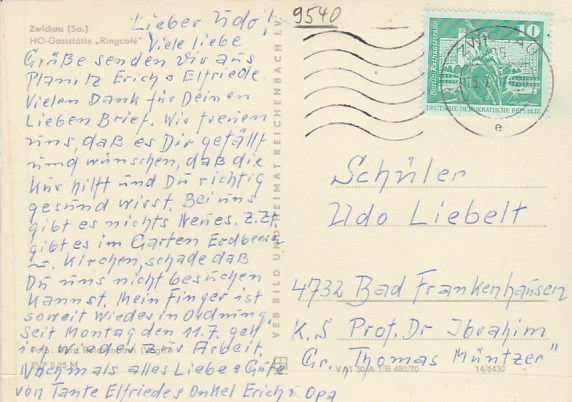 Zwickau (Sa.)
HO-Gaststätte „Ringcafé"
Lieber Udo!
Viele liebe
Grüße senden Dir aus
Planitz Erich & Elfriede.
Vielen Dank für Deinen
Lieben Brief. Wir freuen
uns, daß es Dir gefällt
und wünschen, daß die
Kur hilft und Du richtig
gesund wirst. Bei uns
gibt es nichts Neues. Z.Zt.
gibt es im Garten Erdbeeren
u. Kirchen, schade daß
Du uns nicht besuchen
Kannst. Mein Finger ist
soweit wieder in Ordnung
seit Montag den 11.7. geh
ich wieder zur Arbeit.
Nochmals alles Liebe & Gute
von Tante Elfriede & Onkel Erich & Opa
VEB BILD UND HEIMAT REICHENBACH I.V.
9540
10
DEUTSCHE DEMOKRATISCHE REPUBLIK
ZWICKAU
e
Schüler
Udo Liebelt
4732 Bad Frankenhausen
K.S Prof. Dr Ibrahim
Gr. „Thomas Müntzer"
14/6430